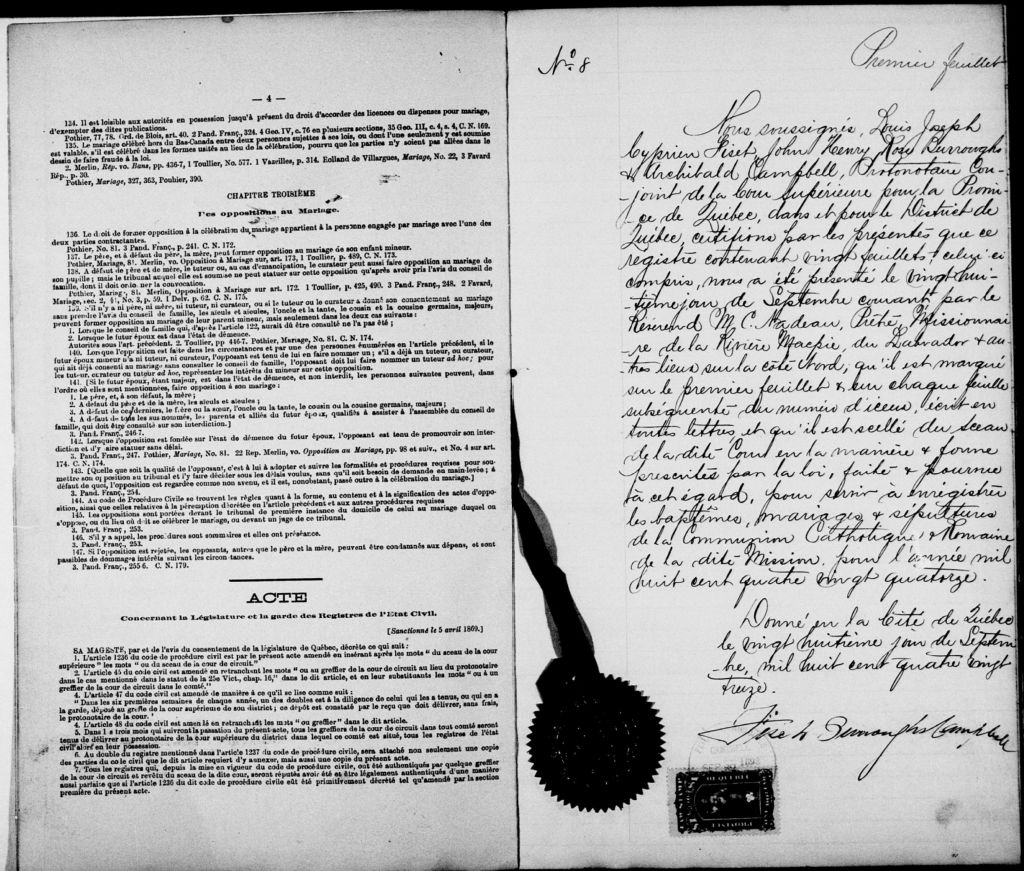 — 4 —
134. Il est loisible aux autorités en possession jusqu'à présent du droit d'accorder des licences ou dispenses pour mariage,
d'exempter des dites publications.
Pothier, 77, 78, Ord. de Blois, art. 40. 2 Pand. Franç., 324. 4 Geo. IV, c. 76 en plusieurs sections, 35 Geo. III, c. 4, s. 4, C. N. 169.
135. Le mariage célébré hors du Bas-Canada entre deux personnes sujettes à ses lois, ou dont l'une seulement y est soumise
est valable, s'il est célébré dans les formes usités au lieu de la célébration, pourvu que les parties n'y soient pas allées dans le
dessin de faire fraude à la loi.
2. Merlin, Rép. vo. Bans, pp. 436-7, 1 Toullier, No. 577. 1 Vazilles, p. 314. Rolland de Villargues, Mariage, No. 22, 3 Favard
Rép., p. 30.
Pothier, Mariage, 327, 363, Pouhier, 390.
CHAPITRE TROISIÈME
Des oppositions au Mariage.
136. Le droit de former opposition à la célébration du mariage appartient à la personne engagée par mariage avec l'une des
deux parties contractantes.
Pothier, No. 81. 3 Pand. Franç., p. 241. C. N. 172.
137. Le père, et à défaut du père, la mère, peut former opposition au mariage de son enfant mineur.
Pothier, Mariage, 81. Merlin, vo. Opposition à Mariage sur art. 173, 1 Toullier, p. 489, C. N. 173.
138. A défaut de père et de mère, le tuteur ou, au cas d'émancipation, le curateur peut aussi faire opposition au mariage de
son pupille; mais le tribunal auquel elle est soumise ne peut statuer sur cette opposition qu'après avoir pris l'avis du conseil de
famille, dont il doit ordonner la convocation.
Pothier, Mariage, 81. Merlin, Opposition à Mariage sur art. 172. 1 Toullier, p. 425, 490. 3 Pand. Franç., 248. 2 Favard,
Mariage, sec. 2, § 1, No. 3, p. 59. 1 Delv. p. 62. C. N. 175.
139. S'il n'y a ni père, ni mère, ni tuteur, ni curateur, ou si le tuteur ou le curateur a donné son consentement au mariage
sans prendre l'avis du conseil de famille, les aïeuls et aïeules, l'oncle et la tante, le cousin et la cousine germains, majeurs,
peuvent former opposition au mariage de leur parent mineur, mais seulement dans les deux cas suivants :
1. Lorsque le conseil de famille qui, d'après l'article 122, aurait dû être consulté ne l'a pas été ;
2. Lorsque le futur époux est dans l'état de démence.
Autorités sous l'art. précédent. 2. Toullier, pp 446-7. Pothier, Mariage, No. 81. C. N. 174.
140. Lorsque l'opposition est faite dans les circonstances et par une des personnes énumérées en l'article précédent, si le
futur époux mineur n'a ni tuteur, ni curateur, l'opposant est tenu de lui en faire nommer un ; s'il a déjà un tuteur, ou curateur,
qui ait déjà consenti au mariage sans consulter le conseil de famille, l'opposant doit lui faire nommer un tuteur ad hoc ; pour
les tuteur, curateur ou tuteur ad hoc, représenter les intérêts du mineur sur cette opposition.
141. [Si le futur époux, étant majeur, est dans l'état de démence, et non interdit, les personnes suivantes peuvent, dans
l'ordre où elles sont mentionnées, faire opposition à son mariage :
1. Le père, et, à son défaut, la mère ;
2. A défaut du père et de la mère, les aïeuls et aïeules ;
3. A défaut de ces derniers, le frère ou la sœur, l'oncle ou la tante, le cousin ou la cousine germains, majeurs ;
4. A défaut de tous les sus-nommés, les parents et alliés du futur époux, qualifiés à assister à l'assemblée du conseil de
famille, qui doit être consulté sur son interdiction.]
3. Pand. Franç., 246-7.
142. Lorsque l'opposition est fondée sur l'état de démence du futur époux, l'opposant est tenu de promouvoir son inter-
diction et d'y faire statuer sans délai.
3. Pand. Franç., 247. Pothier, Mariage, No. 81. 22 Rep. Merlin, vo. Opposition au Mariage, pp. 98 et suiv., et No. 4 sur art.
174. C. N. 174.
143. [Quelle que soit la qualité de l'opposant, c'est à lui à adopter et suivre les formalités et procédures requises pour sou-
mettre son opposition au tribunal et l'y faire décider sous les délais voulus, sans qu'il soit besoin de demande en main-levée ; à
défaut de quoi, l'opposition est regardée comme non avenu, et il est, nonobstant, passé outre à la célébration du mariage.]
3. Pand. Franç., 254.
144. Au code de Procédure Civile se trouvent les règles quant à la forme, au contenu et à la signification des actes d'oppo-
sition, ainsi que celles relatives à la péremption décrétée en l'article précédent et aux autres procédures requises
145. Les oppositions sont portées devant le tribunal de première instance du domicile de celui au mariage duquel on
s'oppose, ou du lieu où doit se célébrer le mariage, ou devant un juge de ce tribunal.
3. Pand. Franç., 253.
146. S'il y a appel, les procédures sont sommaires et elles ont préséance.
3. Pand. Franç., 253.
147. Si l'opposition est rejetée, les opposants, autres que le père et la mère, peuvent être condamnés aux dépens, et sont
passibles de dommages intérêts suivant les circonstances.
3. Pand. Franç., 255 6. C. N. 179.
ACTE
Concernant la Législature et la garde des Registres de l'Etat Civil.
[Sanctionné le 5 avril 1869.]
SA MAGESTE, par et de l'avis du consentement de la législature de Québec, décrète ce qui suit :
1. L'article 1236 du code de procédure civil est par le présent acte amendé en insérant après les mots " du sceau de la cour
supérieure " les mots " ou du sceau de la cour de circuit."
2. L'article 45 du code civil est amendé en retranchant les mots " ou au greffier de la cour de circuit au lieu du protonotaire
dans le cas mentionné dans le statut de la 25e Vict., chap. 16," dans le dit article, et en leur substituants les mots " ou à un
greffier de la cour de circuit dans le comté."
4. L'article 47 du code civil est amendé de manière à ce qu'il se lise comme suit :
" Dans les six premières semaines de chaque année, un des doubles est à la diligence de celui qui les a tenus, ou qui en a
la garde, déposé au greffe de la cour supérieure de son district ; ce dépôt est constaté par le reçu que doit délivrer, sans frais,
le protonotaire de la cour. "
4. L'article 48 du code civil est amendé en retranchant les mots " ou greffier " dans le dit article.
5. Dans les trois mois qui suivront la passation du présent acte, tous les greffiers de la cour de circuit dans tout comté seront
tenus de délivrer au protonotaire de la cour supérieure du district dans lequel ce comté est situé, tous les registres de l'état
civil alors en leur possession.
6. Au double du registre mentionné dans l'article 1237 du code de procédure, sera attaché non seulement une copie
des parties du code civil que le dit article requiert d'y annexer, mais aussi une copie du présent acte.
7. Tous les registres qui, depuis la mise en vigueur du code de procédure civil, ont été authentiqués par quelque greffier
de la cour de circuit et revêtu du sceau de la dite cour, seront réputés avoir été et être légalement authentiqués d'une manière
aussi parfaite que si l'article 1236 du dit code de procédure civile eût été primitivement décrété tel qu'amendé par la section
première du présent acte.
No. 8
Premier feuillet
Nous soussignés, Louis Joseph
Cyprien Fiset, John Henry Ross Burroughs
& Archibald Campbell, Protonotaire Con-
joint de la Cour Supérieure pour la Provin-
ce de Québec, dans et pour le District de
Québec, certifions par les présentes que ce
registre contenant vingt feuillets, celui-ci
compris, nous a été présenté le vingt hui-
tième jour de Septembre courant, par le
Révérend M. C. Nadeau, Prêtre, Missionnai-
re de la Rivière Magpie, du Labrador & au-
tres lieux sur la côte Nord, qu'il est marqué
sur le premier feuillet & sur chaque feuille
subséquente du numéro d'iceux, écrit en
toutes lettres et qu'il est scellé du sceau
de la dite Cour en la manière & forme
prescrites par la loi, faite & pourvue
à cet égard, pour servir à enregistrer
les baptêmes, mariages & sépultures
de la Communion Catholique & Romaine
de la dite Mission, pour l'année mil
huit cent quatre vingt quatorze.
Donné en la Cité de Québec
le vingt huitième jour de Septem-
bre, mil huit cent quatre vingt
treize.
Fiset Burroughs Campbell
QUEBEC